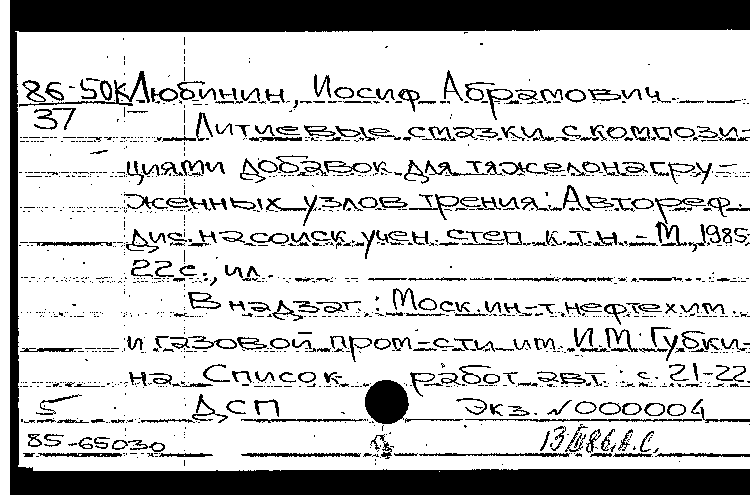 86-50к Любинин, Иосиф Абрамович.
37
Литиевые смазки с компози-
циями добавок для тяжелонагру-
женных узлов трения: Автореф.
дис. на соиск. учен. степ. к.т.н. - М., 1985
22 с., ил.
В надзаг.: Моск. ин-т нефтехим.
и газовой пром-сти им. И.М. Губки-
на. Список работ авт.: с. 21-22
5 ДСП Экз. №000004
85-65030